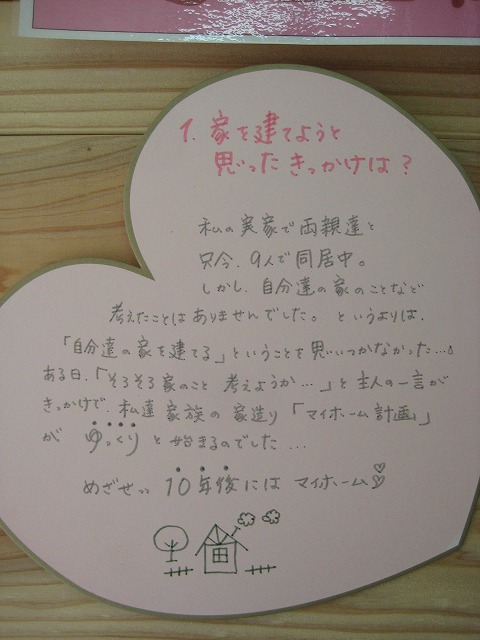 1. 家を建てようと
思ったきっかけは?
私の実家で両親達と
只今、9人で同居中。
しかし、自分達の家のことなど
考えたことはありませんでした。というよりは、
「自分達の家を建てる」ということを思いつかなかった…。
ある日、「そろそろ家のこと考えようか…」と主人の一言が
きっかけで、私達家族の家造り「マイホーム計画」
が ゆっくり と始まるのでした…
めざせッ 10年後には マイホーム♡